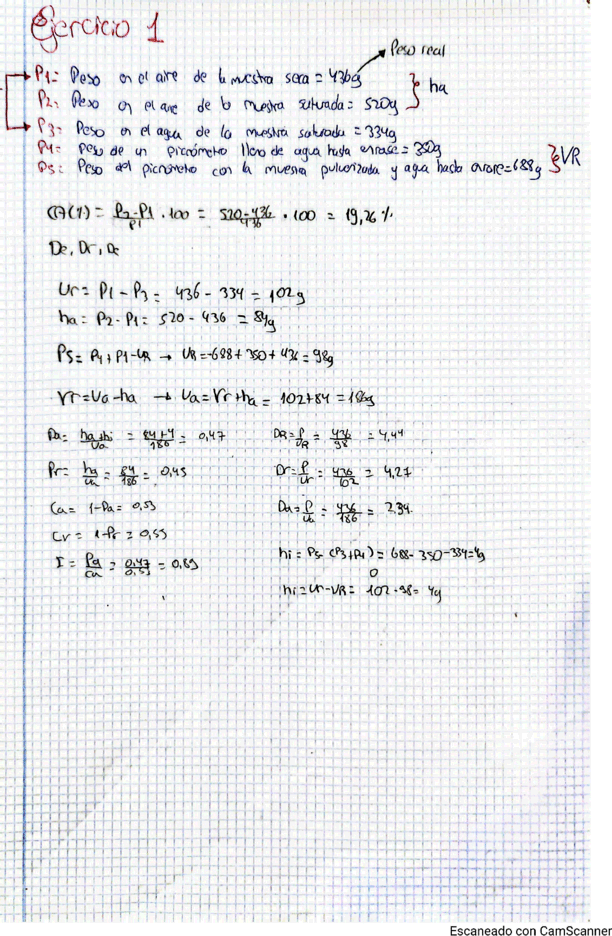 Ejercicio 1
Peso real
P1= Peso en el aire de la muestra seca = 436g
P2= Peso en el aire de la muestra saturada = 520g
ha
P3= Peso en el agua de la muestra saturada = 334g
P4= peso de un picnómetro lleno de agua hasta enrase = 350g
P5= Peso del picnómetro con la muestra pulverizada y agua hasta enrase = 688g
VR
CA(%) = P2-P1/P1 · 100 = 520-436/436 · 100 = 19,26 %
De, Dr, De
Ur = P1 - P3 = 436 - 334 = 102g
ha = P2 - P1 = 520 - 436 = 84g
P5 = P4 + P1 - UR → UR = -688 + 350 + 436 = 98g
Vr = Va - ha → Va = Vr + ha = 102+84 = 186g
Pa = ha+hi/Va = 84+4/186 = 0,47
DR = P/VR = 436/98 = 4,44
Pr = ha/Va = 84/186 = 0,45
Dr = P/Ur = 436/102 = 4,27
Ca = 1-Pa = 0,53
Da = P/Va = 436/186 = 2,34
Cr = 1-Pr = 0,55
hi = P5 - (P3+P4) = 688 - 350 - 334 = 4g
I = Pa/Ca = 0,47/0,53 = 0,89
o
hi = Ur - VR = 102 - 98 = 4g
Escaneado con CamScanner